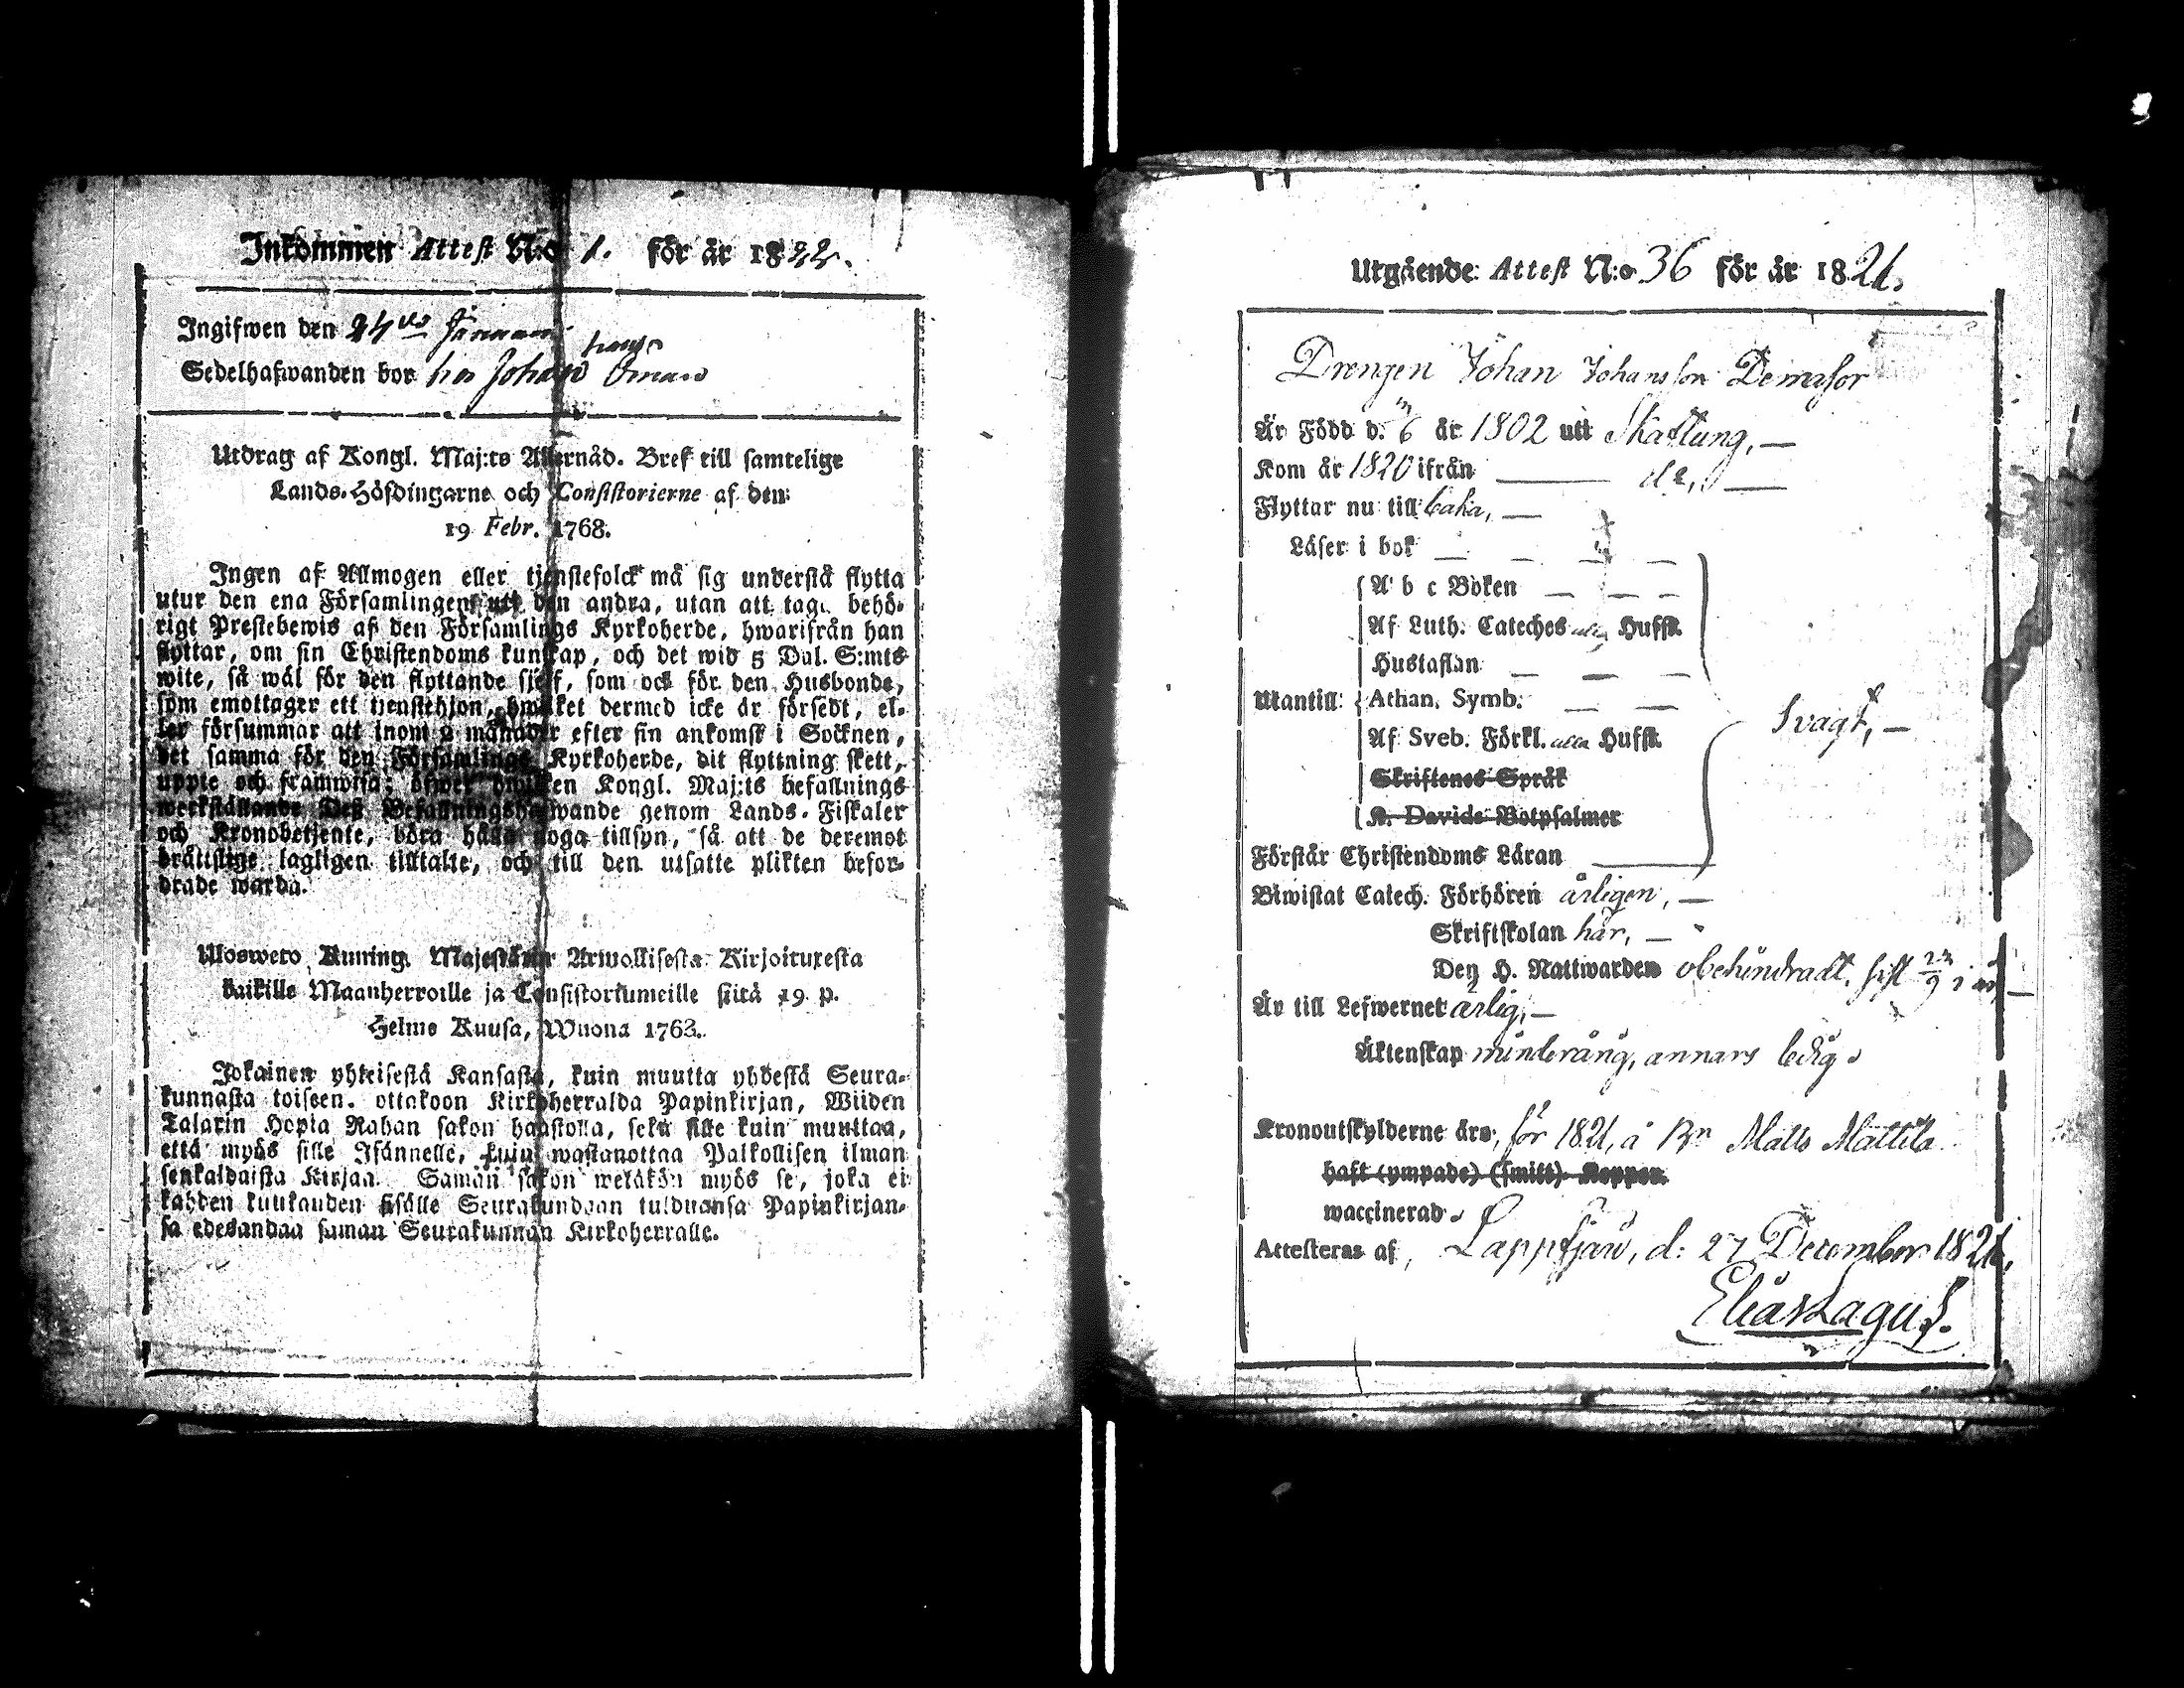 Inkommen Attest N:o 1. för år 1822.
Ingifwen den 24de Januari
Sedelhafwanden bor hos Johan
Utdrag af Kongl. Maj:ts Allernåd. Bref till samtelige
Lands-Höfdingarne och Consistorierne af den
19 Febr. 1768.
Ingen af Allmogen eller tjenstefolck må sig understå flytta
utur den ena Församlingen utt den andra, utan att taga behö-
rigt Prestebewis af den Församlings Kyrkoherde, hwarifrån han
flyttar, om sin Christendoms kunskap, och det wid 5 Dal. S:mts
wite, så wäl för den flyttande sjelf, som ock för den Husbonde,
som emottager ett tjenstehjon, hwilket dermed icke är försedt, el-
ler försummar att inom 2 månader efter sin ankomst i Socknen,
det samma för den Församlings Kyrkoherde, dit flyttning skett,
uppte och framwisa; öfwer hwilken Kongl. Maj:ts befallnings
werkställande Deß Befallningshafwande genom Lands-Fiskaler
och Kronobetjente, böra hålla noga tillsyn, så att de deremot
bråttslige lagligen tilltalte, och till den utsatte plikten befor-
drade warda.
Uloswero Kuning. Majestätin Armollisesta Kirjoituxesta
kaikille Maanherroille ja Consistoriumeille siitä 19 p.
Helme Kuusa, Wuona 1763.
Jokainen yhteisestä Kansasta, kuin muutta yhdestä Seura-
kunnasta toiseen. ottakoon Kirkoherralda Papinkirjan, Wiiden
Talarin Hopia Rahan sakon haastolla, sekä sille kuin muuttaa,
että myös sille Isännelle, kuin wastanottaa Palkollisen ilman
senkaldaista Kirjaa. Saman sakon wetäkön myös se, joka ei
kahden kuukauden sisälle Seurakundaan tulduansa Papinkirjan-
sa edesandaa saman Seurakunnan Kirkoherralle.
Utgående Attest N:o 36 för år 1821.
Drengen Johan Johansson Demasor
Är Född d. 6 är 1802 utt Skaftung, —
Kom år 1820 ifrån — do, —
Flyttar nu till baka, —
Läser i bok — — — —
A b c Boken — — —
Af Luth. Cateches alla Hufst.
Hustaflan — — —
Utantill: Athan. Symb. — —
Svagt, —
Af Sveb. Förkl. alla Hufst.
Skriftenes Språk
K. Davids Botpsalmer
Förstår Christendoms Läran —
Biwistat Catech. Förhören årligen, —
Skriftskolan här, —
Den H. Nattwarden obehindradt, sist 23/9 i år, —
Är till Lefwernet ärlig, —
Äktenskap minderårig, annars ledig.
Kronoutskylderne äro, för 1821, å Bn Matts Mattila
haft (ympade) (smitt) Koppor.
waccinerad.
Attesteras af, Lappfjärd, d: 27 December 1821,
Elias Lagus.